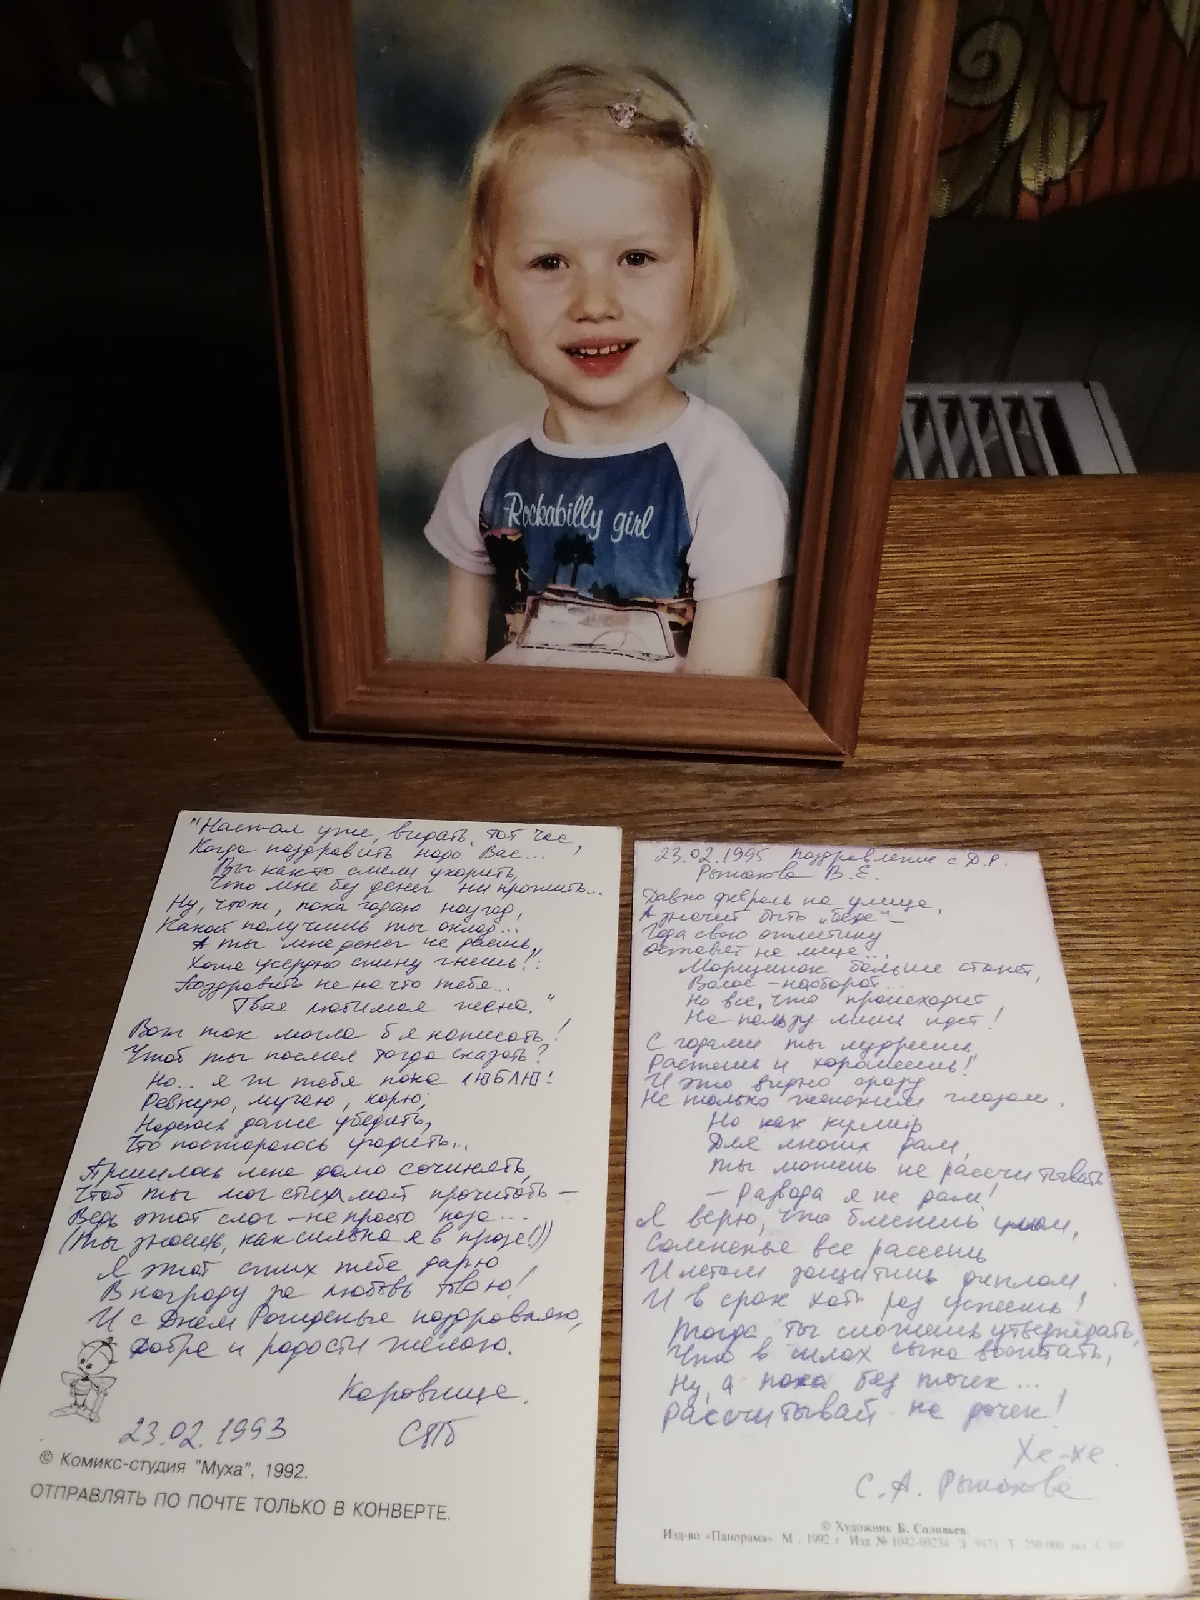 Rockabilly girl
"Настал уже, видать, тот час,
Когда поздравить надо Вас...
Вы как-то смели укорить,
Что мне без денег не прожить...
Ну, что ж, пока гадаю наугад,
Какой получишь ты оклад...
А ты мне денег не даешь,
Хотя усердно спину гнешь!..
Поздравить не на что тебя...
Твоя любимая жена."
Вот так могла б я написать!
Чтоб ты посмел тогда сказать?
Но... я ж тебя пока ЛЮБЛЮ!
Ревную, мучаю, корю,
Надеюсь даже убедить,
Что постараюсь угодить...
Пришлось мне дома сочинять,
Чтоб ты мог стих мой прочитать –
Ведь этот слог – не просто
(Ты знаешь, как сильна я в прозе!))
Я этот стих тебе дарю
В награду за любовь твою!
И с Днём Рожденья поздравляю,
Добра и радости желаю.
23.02.1993 СПб
© Комикс-студия "Муха", 1992.
ОТПРАВЛЯТЬ ПО ПОЧТЕ ТОЛЬКО В КОНВЕРТЕ.
23.02.1995 поздравление с Д.Р.
Рыжакова В.Е.
Давно февраль на улице,
А значит быть „беде" –
Года свою отметину
Оставят на лице...
Морщинок больше станет,
Волос – наоборот...
Но все, что происходит
На пользу лишь идет!
С годами ты мудреешь,
Растешь и хорошеешь!
И это видно сразу
Не только женским глазом.
Но как кумир
Для многих дам,
Ты можешь не рассчитывать
– Развода я не дам!
Я верю, что блеснешь умом,
Сомненье все рассеешь
И летом защитишь диплом
И в срок хоть раз успеешь!
Тогда ты сможешь утверждать,
Что в силах сына воспитать,
Ну, а пока без точек...
Рассчитывай на дочек!
Хе-хе.
С.А. Рыжакова
© Художник Б. Соловьев.
Изд-во «Панорама» М. 1992 г. Изд № 1042-60234